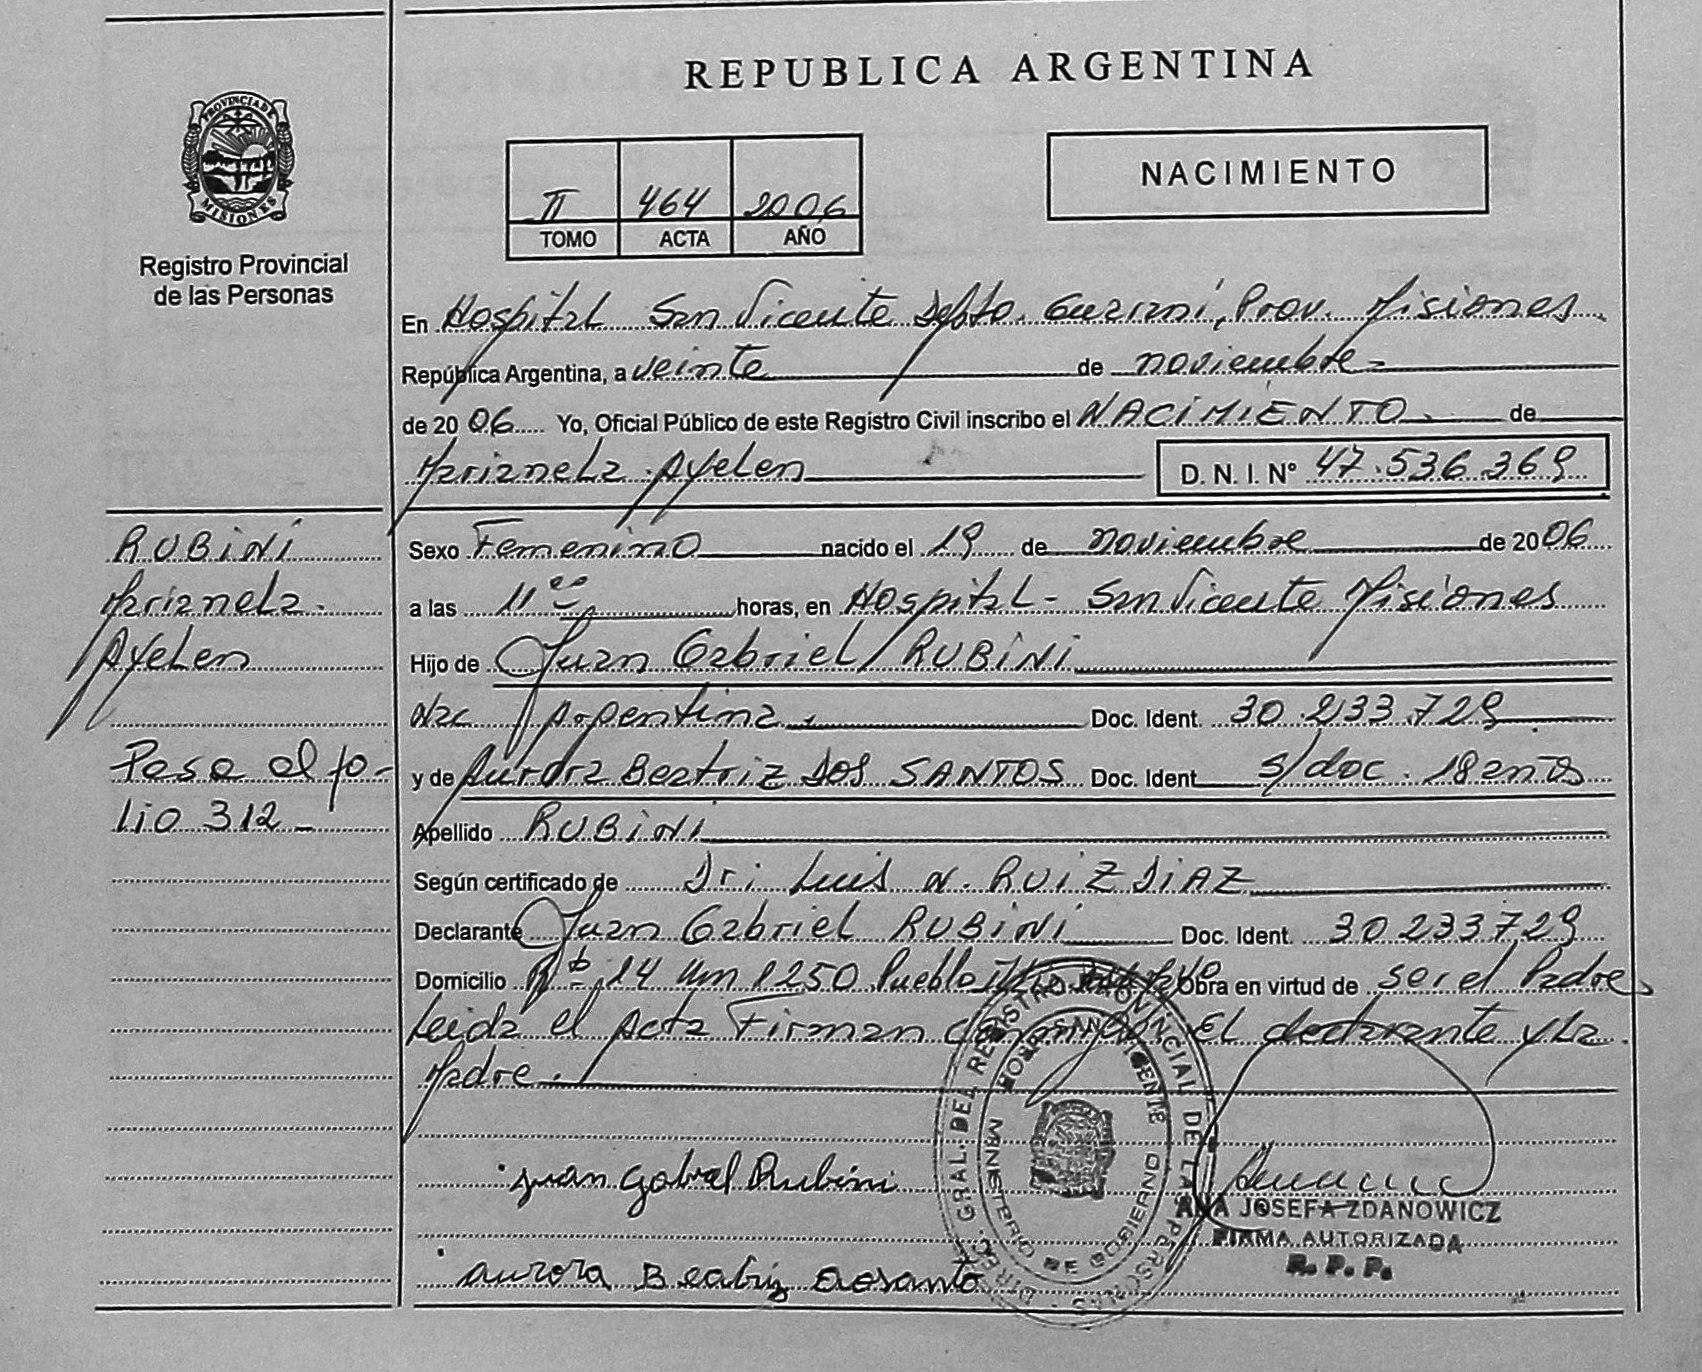 REPUBLICA ARGENTINA
PROVINCIA DE
MISIONES
Registro Provincial
de las Personas
II 464 2006
TOMO ACTA AÑO
NACIMIENTO
En Hospital San Vicente Depto. Guaraní, Prov. Misiones
República Argentina, a veinte de noviembre
de 2006 Yo, Oficial Público de este Registro Civil inscribo el NACIMIENTO de
Marianela Ayelen D. N. I. N° 47.536.369
RUBINI
Marianela
Ayelen
Pasa al fo-
lio 312
Sexo Femenino nacido el 19 de noviembre de 2006
a las 11 00 horas, en Hospital - San Vicente Misiones
Hijo de Juan Gabriel RUBINI
Nac Argentina. Doc. Ident. 30.233.729
y de Aurora Beatriz DOS SANTOS Doc. Ident. s/doc. 18 años
Apellido RUBINI
Según certificado de Dr: Luis N. RUIZ DIAZ
Declarante Juan Gabriel RUBINI Doc. Ident. 30 233 729
Domicilio 14 km 1250 Pueblo Obra en virtud de ser el Padre
Leida el Acta Firman El declarante y La
Madre.
Juan Gabriel Rubini
Aurora Beatriz dosanto
DIREC. GRAL. DEL REGISTRO PROVINCIAL DE LAS PERSONAS
HOSP. SAN VICENTE
MINISTERIO DE GOBIERNO
ANA JOSEFA ZDANOWICZ
FIRMA AUTORIZADA
R. P. P.